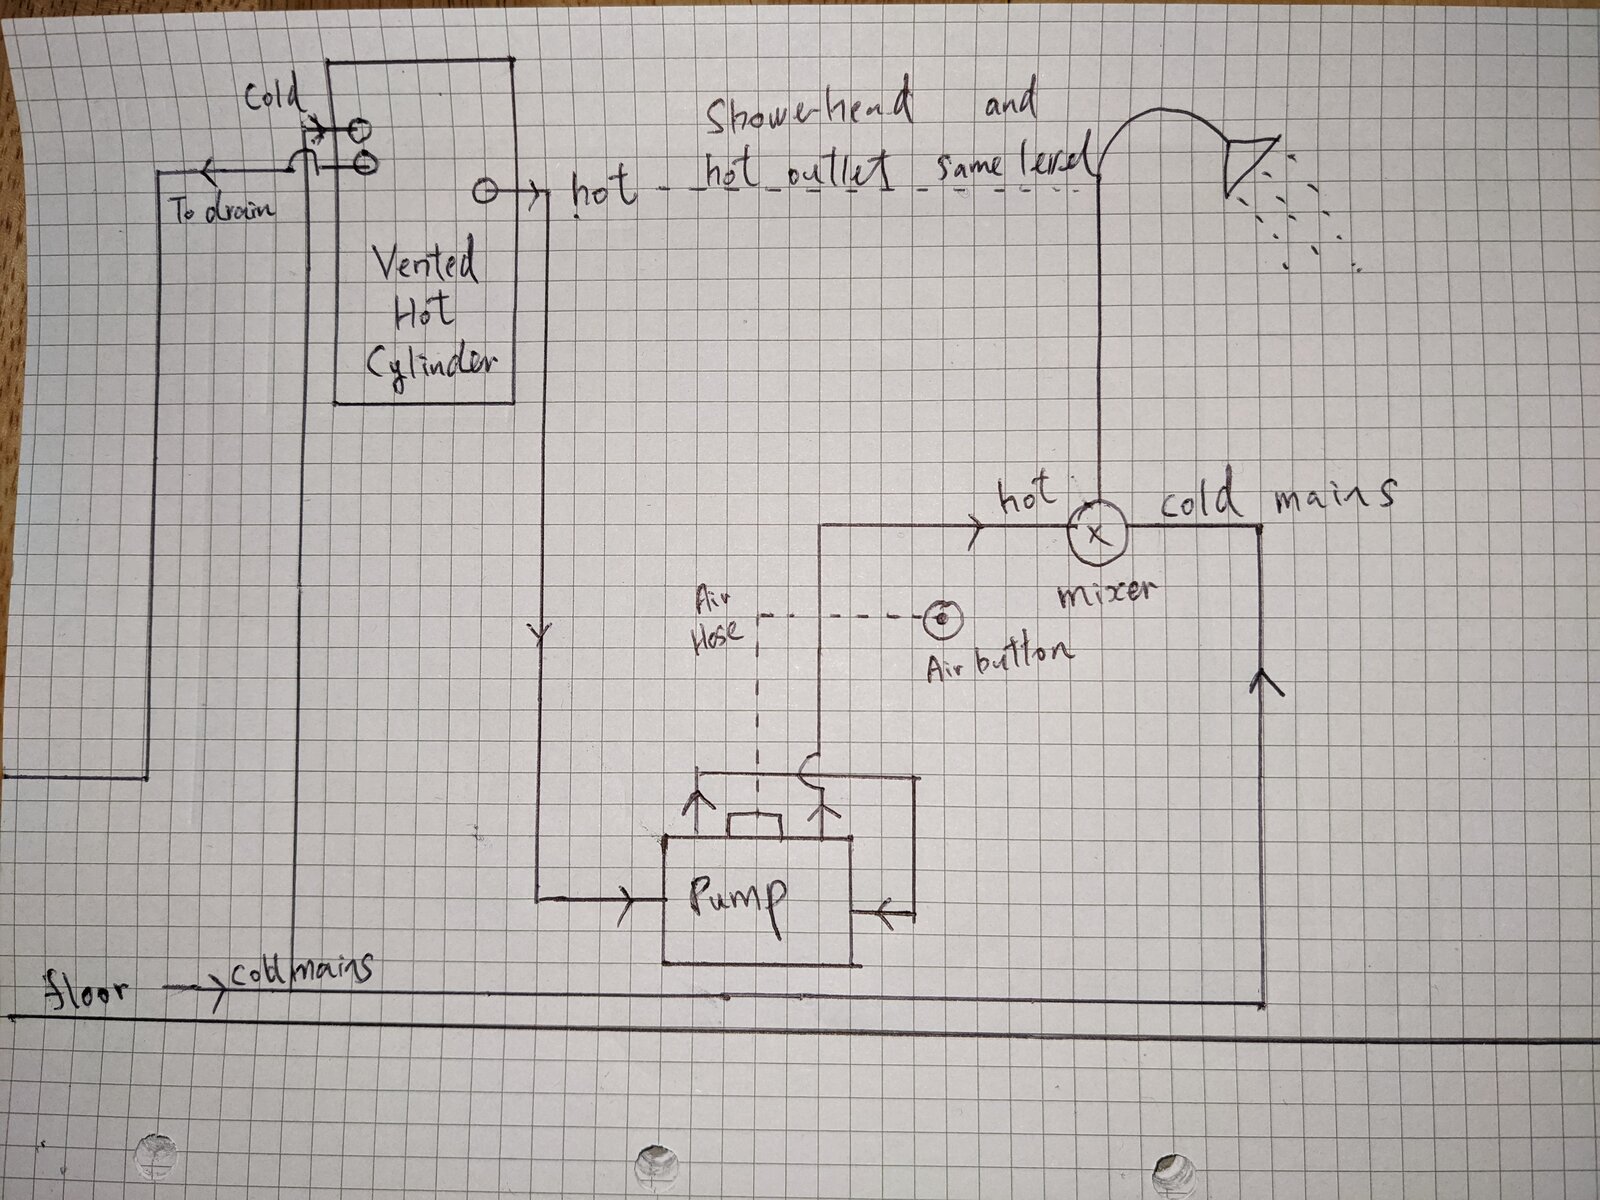 Cold
Showerhead and
hot outlet same level
hot
To drain
Vented
Hot
Cylinder
hot
cold mains
x
mixer
Air
Hose
Air button
Pump
floor
cold mains